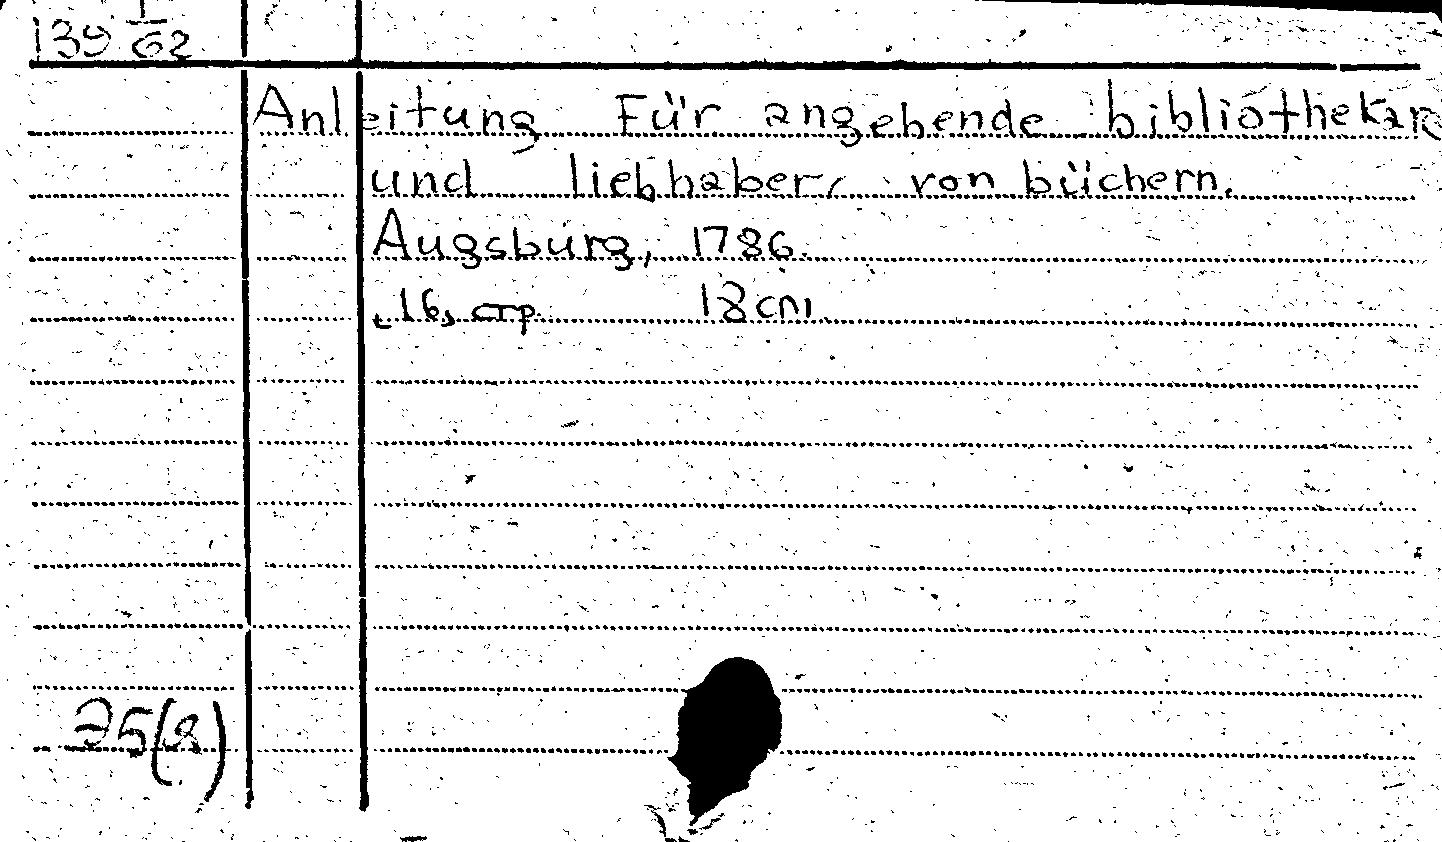 139 1/62
Anleitung Für angehende bibliothekar
und liebhaber von büchern.
Augsburg, 1786.
16, стр. 18 cm.